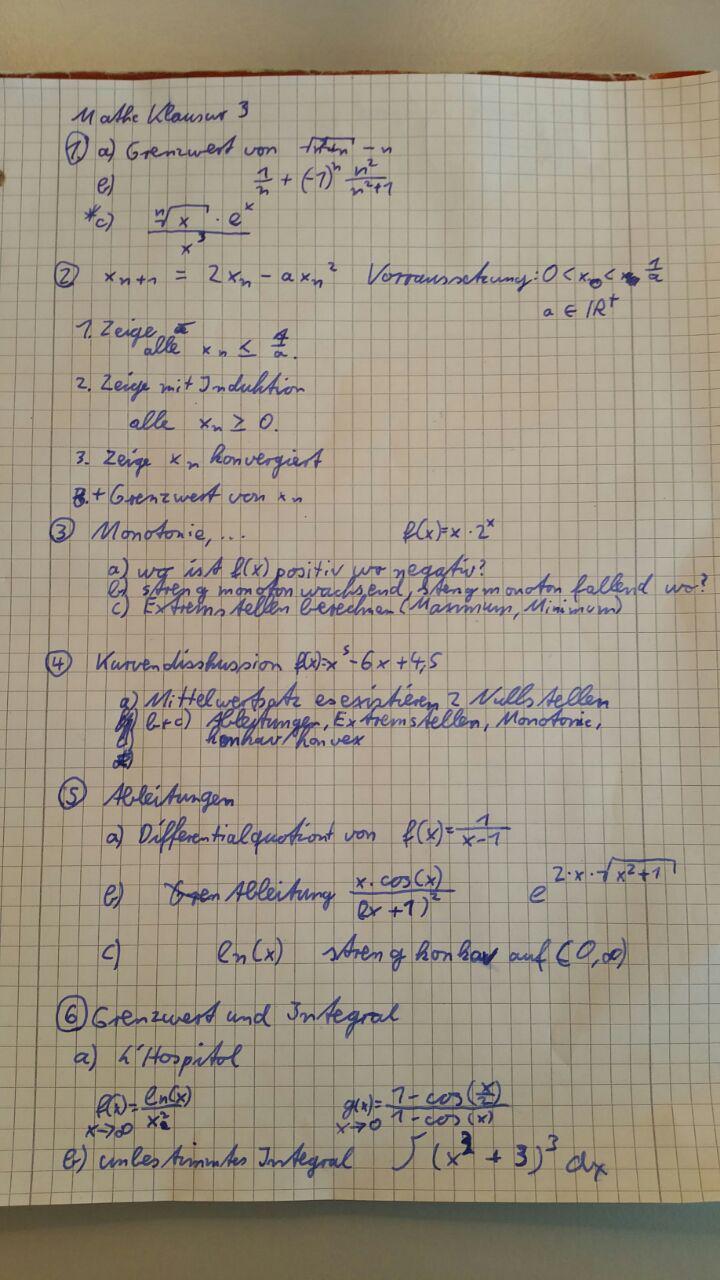 Mathe Klausur 3
① a) Grenzwert von √(n²+n) - n
b) 1/n + (-1)^n n²/(n²+1)
*c) (ⁿ√x · e^x)/x³
② xₙ₊₁ = 2xₙ - axₙ² Vorraussetzung: 0 < x₀ < 1/a
a ∈ ℝ⁺
1. Zeige
alle xₙ ≤ 1/a.
2. Zeige mit Induktion
alle xₙ ≥ 0.
3. Zeige xₙ konvergiert
+ Grenzwert von xₙ
③ Monotonie, ... f(x)=x·2^x
a) wo ist f(x) positiv wo negativ?
b) streng monoton wachsend, streng monoton fallend wo?
c) Extremstellen berechnen (Maximum, Minimum)
④ Kurvendisskussion f(x)=x⁵-6x+4,5
a) Mittelwertsatz es existieren 2 Nullstellen
b+c) Ableitungen, Extremstellen, Monotonie,
konkav/konvex
⑤ Ableitungen
a) Differentialquotient von f(x)=1/(x-1)
b) Ableitung (x·cos(x))/(2x+1)² e^(2·x·√(x²+1))
c) ln(x) streng konkav auf (0,∞)
⑥ Grenzwert und Integral
a) L'Hospitol
f(x)=ln(x)/x² g(x)=(1-cos(x/2))/(1-cos(x))
x→∞ x→0
b) unbestimmtes Integral ∫(x²+3)³ dx